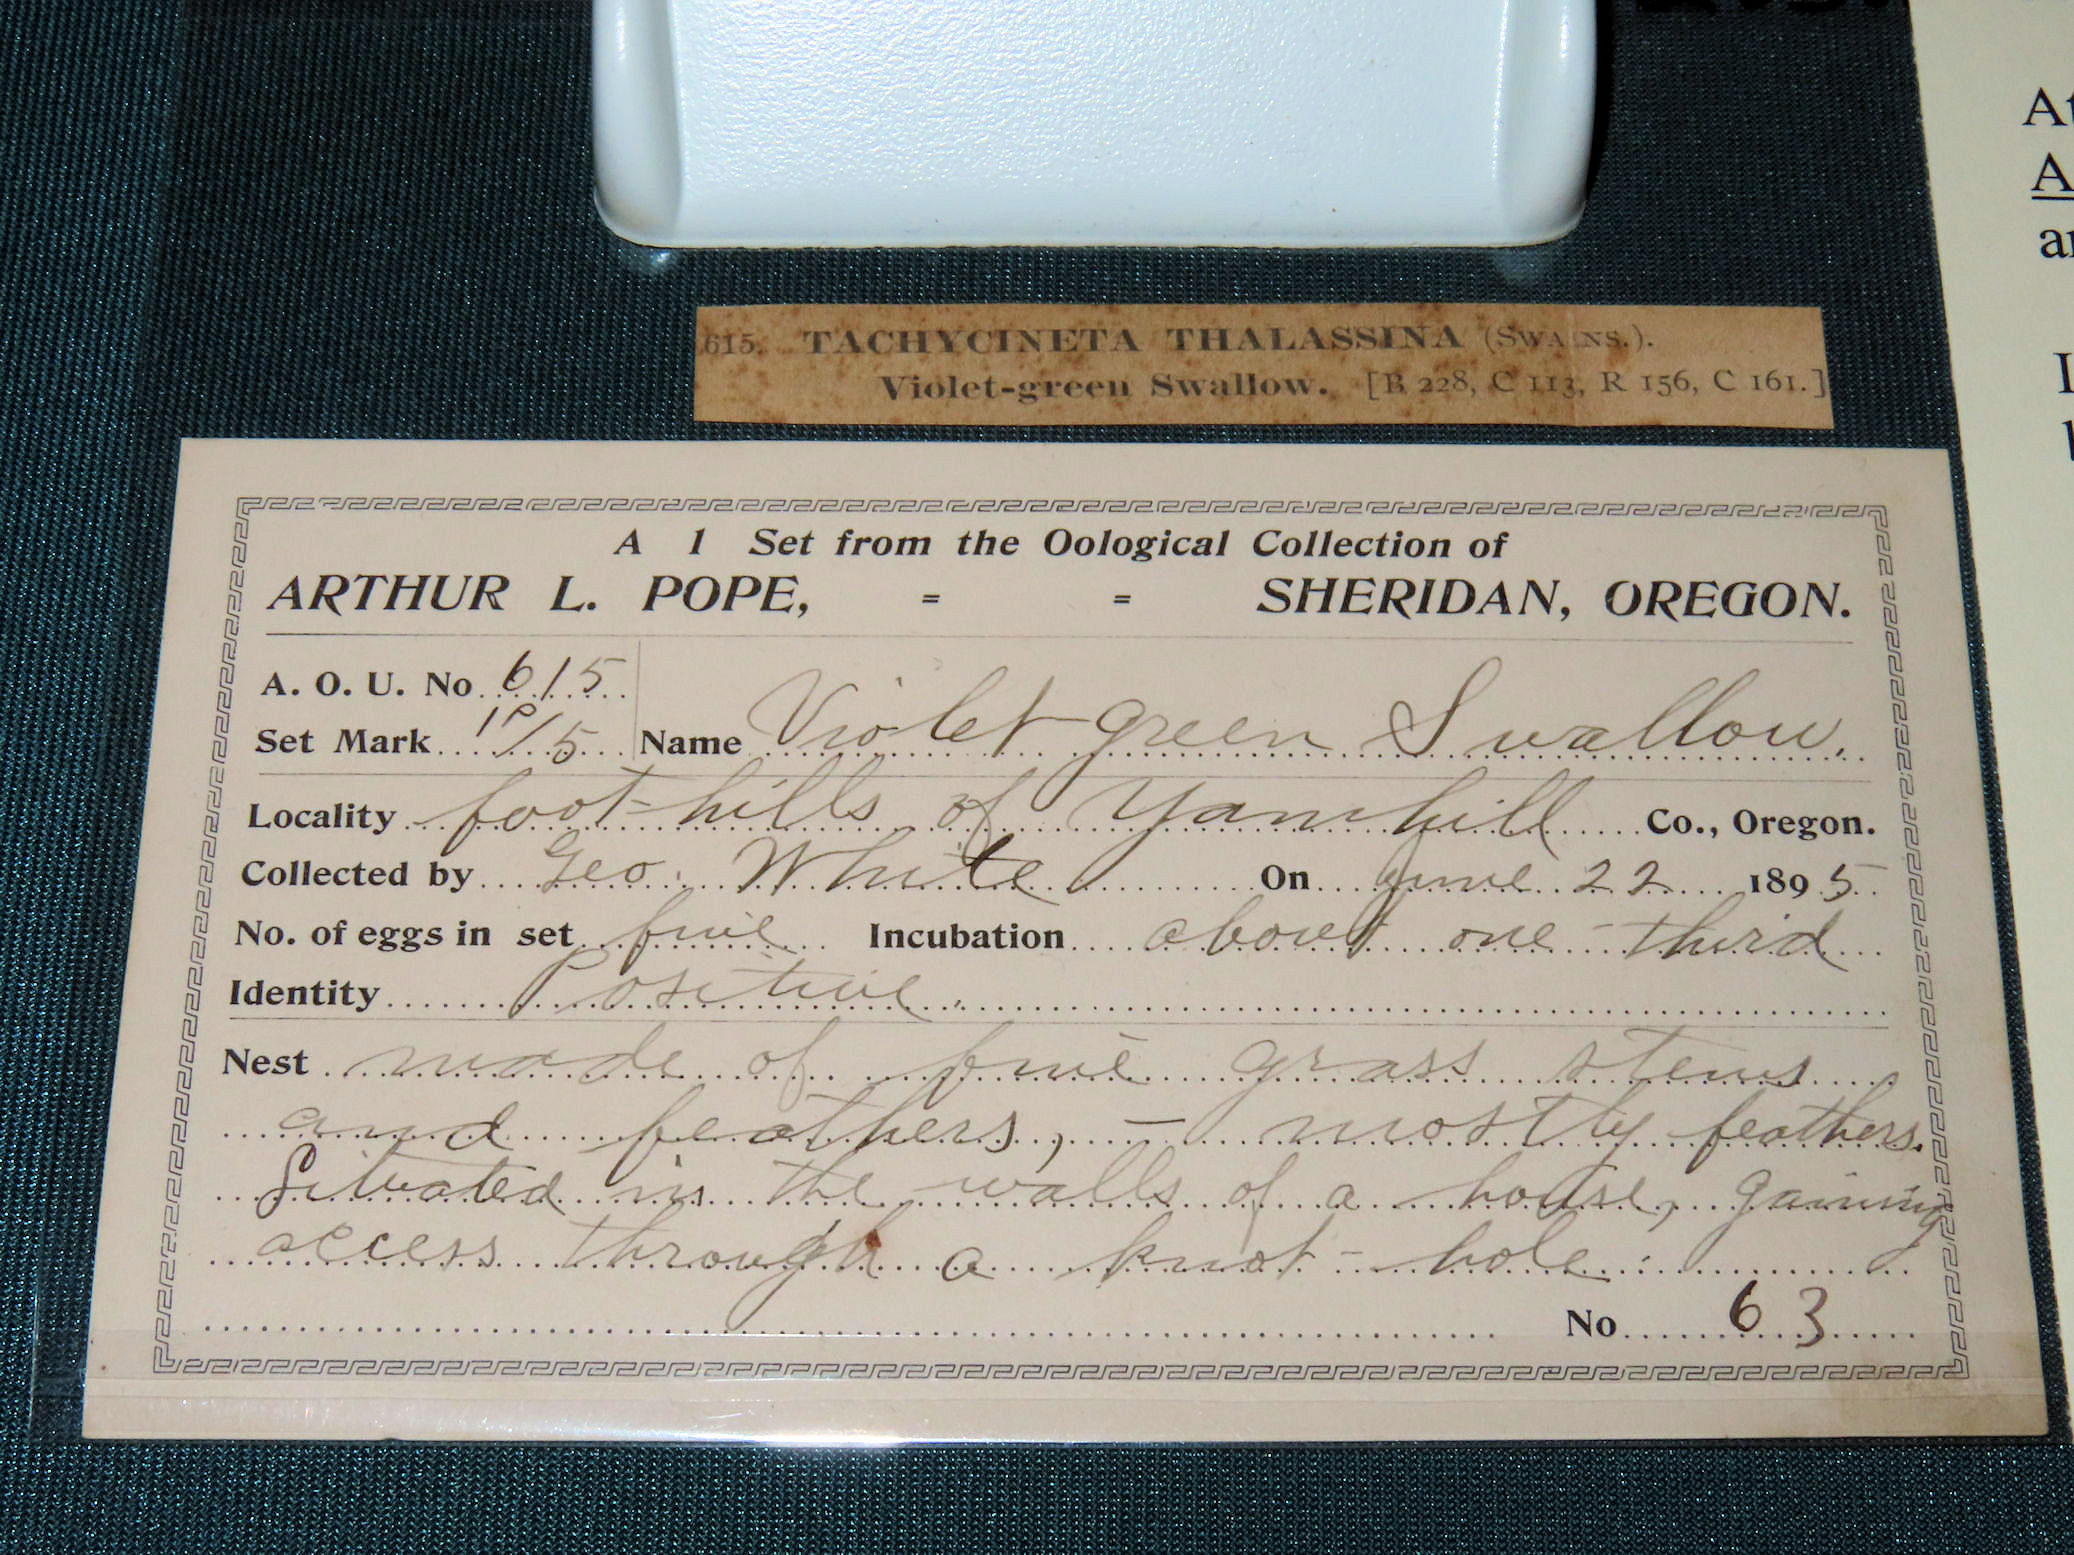 At
A
a
615. TACHYCINETA THALASSINA (SWAINS.).
Violet-green Swallow. [B 228, C 113, R 156, C 161.]
A 1 Set from the Oological Collection of
ARTHUR L. POPE, = = SHERIDAN, OREGON.
A. O. U. No. 615
Set Mark 1P/5 Name Violet green Swallow.
Locality foot-hills of Yamhill Co., Oregon.
Collected by Geo. White On June 22 1895
No. of eggs in set five Incubation about one-third
Identity Positive.
Nest made of fine grass stems
and feathers, - mostly feathers.
Situated in the walls of a house, gaining
access through a knot-hole.
No. 63